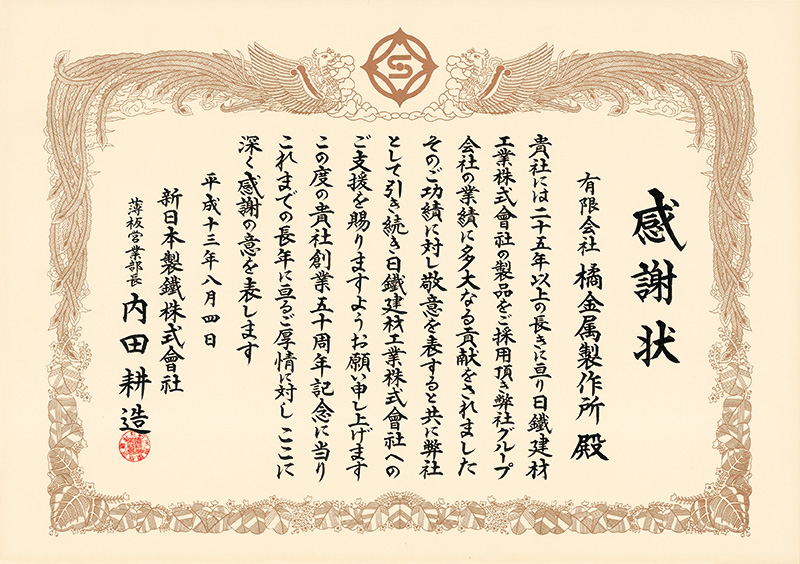 感謝状
有限会社 橘金属製作所 殿
貴社には二十五年以上の長きに亘り日鐵建材
工業株式會社の製品をご採用頂き弊社グループ
会社の業績に多大なる貢献をされました
そのご功績に対し敬意を表すると共に弊社
として引き続き日鐵建材工業株式會社への
ご支援を賜りますようお願い申し上げます
この度の貴社創業五十周年記念に当り
これまでの長年に亘るご厚情に対しここに
深く感謝の意を表します
平成十三年八月四日
新日本製鐵株式會社
薄板営業部長 内田耕造